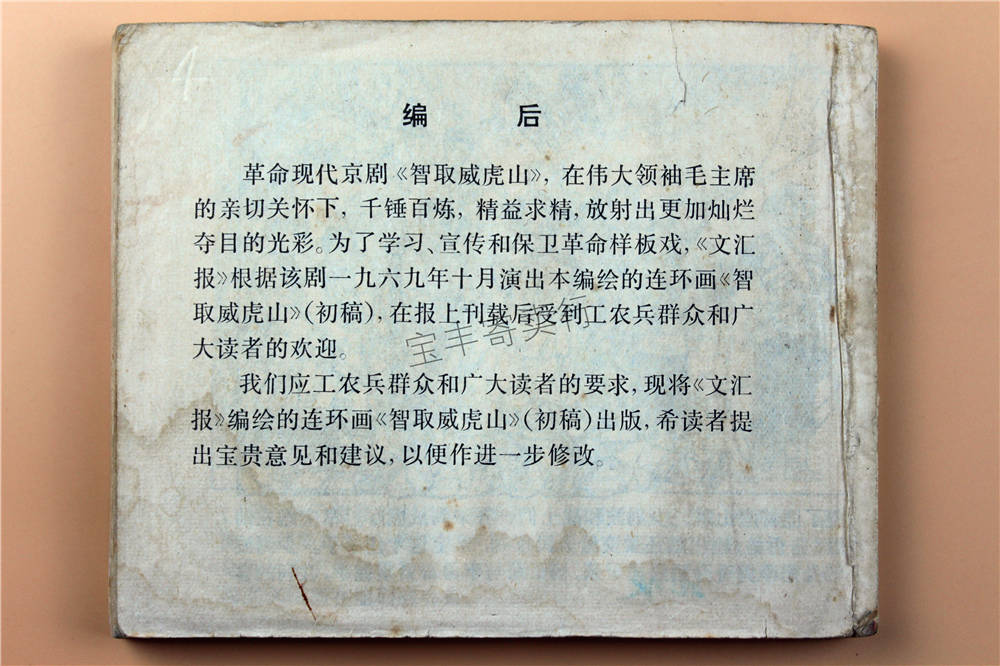 编 后
革命现代京剧《智取威虎山》，在伟大领袖毛主席
的亲切关怀下，千锤百炼，精益求精，放射出更加灿烂
夺目的光彩。为了学习、宣传和保卫革命样板戏，《文汇
报》根据该剧一九六九年十月演出本编绘的连环画《智
取威虎山》(初稿)，在报上刊载后受到工农兵群众和广
大读者的欢迎。
我们应工农兵群众和广大读者的要求，现将《文汇
报》编绘的连环画《智取威虎山》(初稿)出版，希读者提
出宝贵意见和建议，以便作进一步修改。